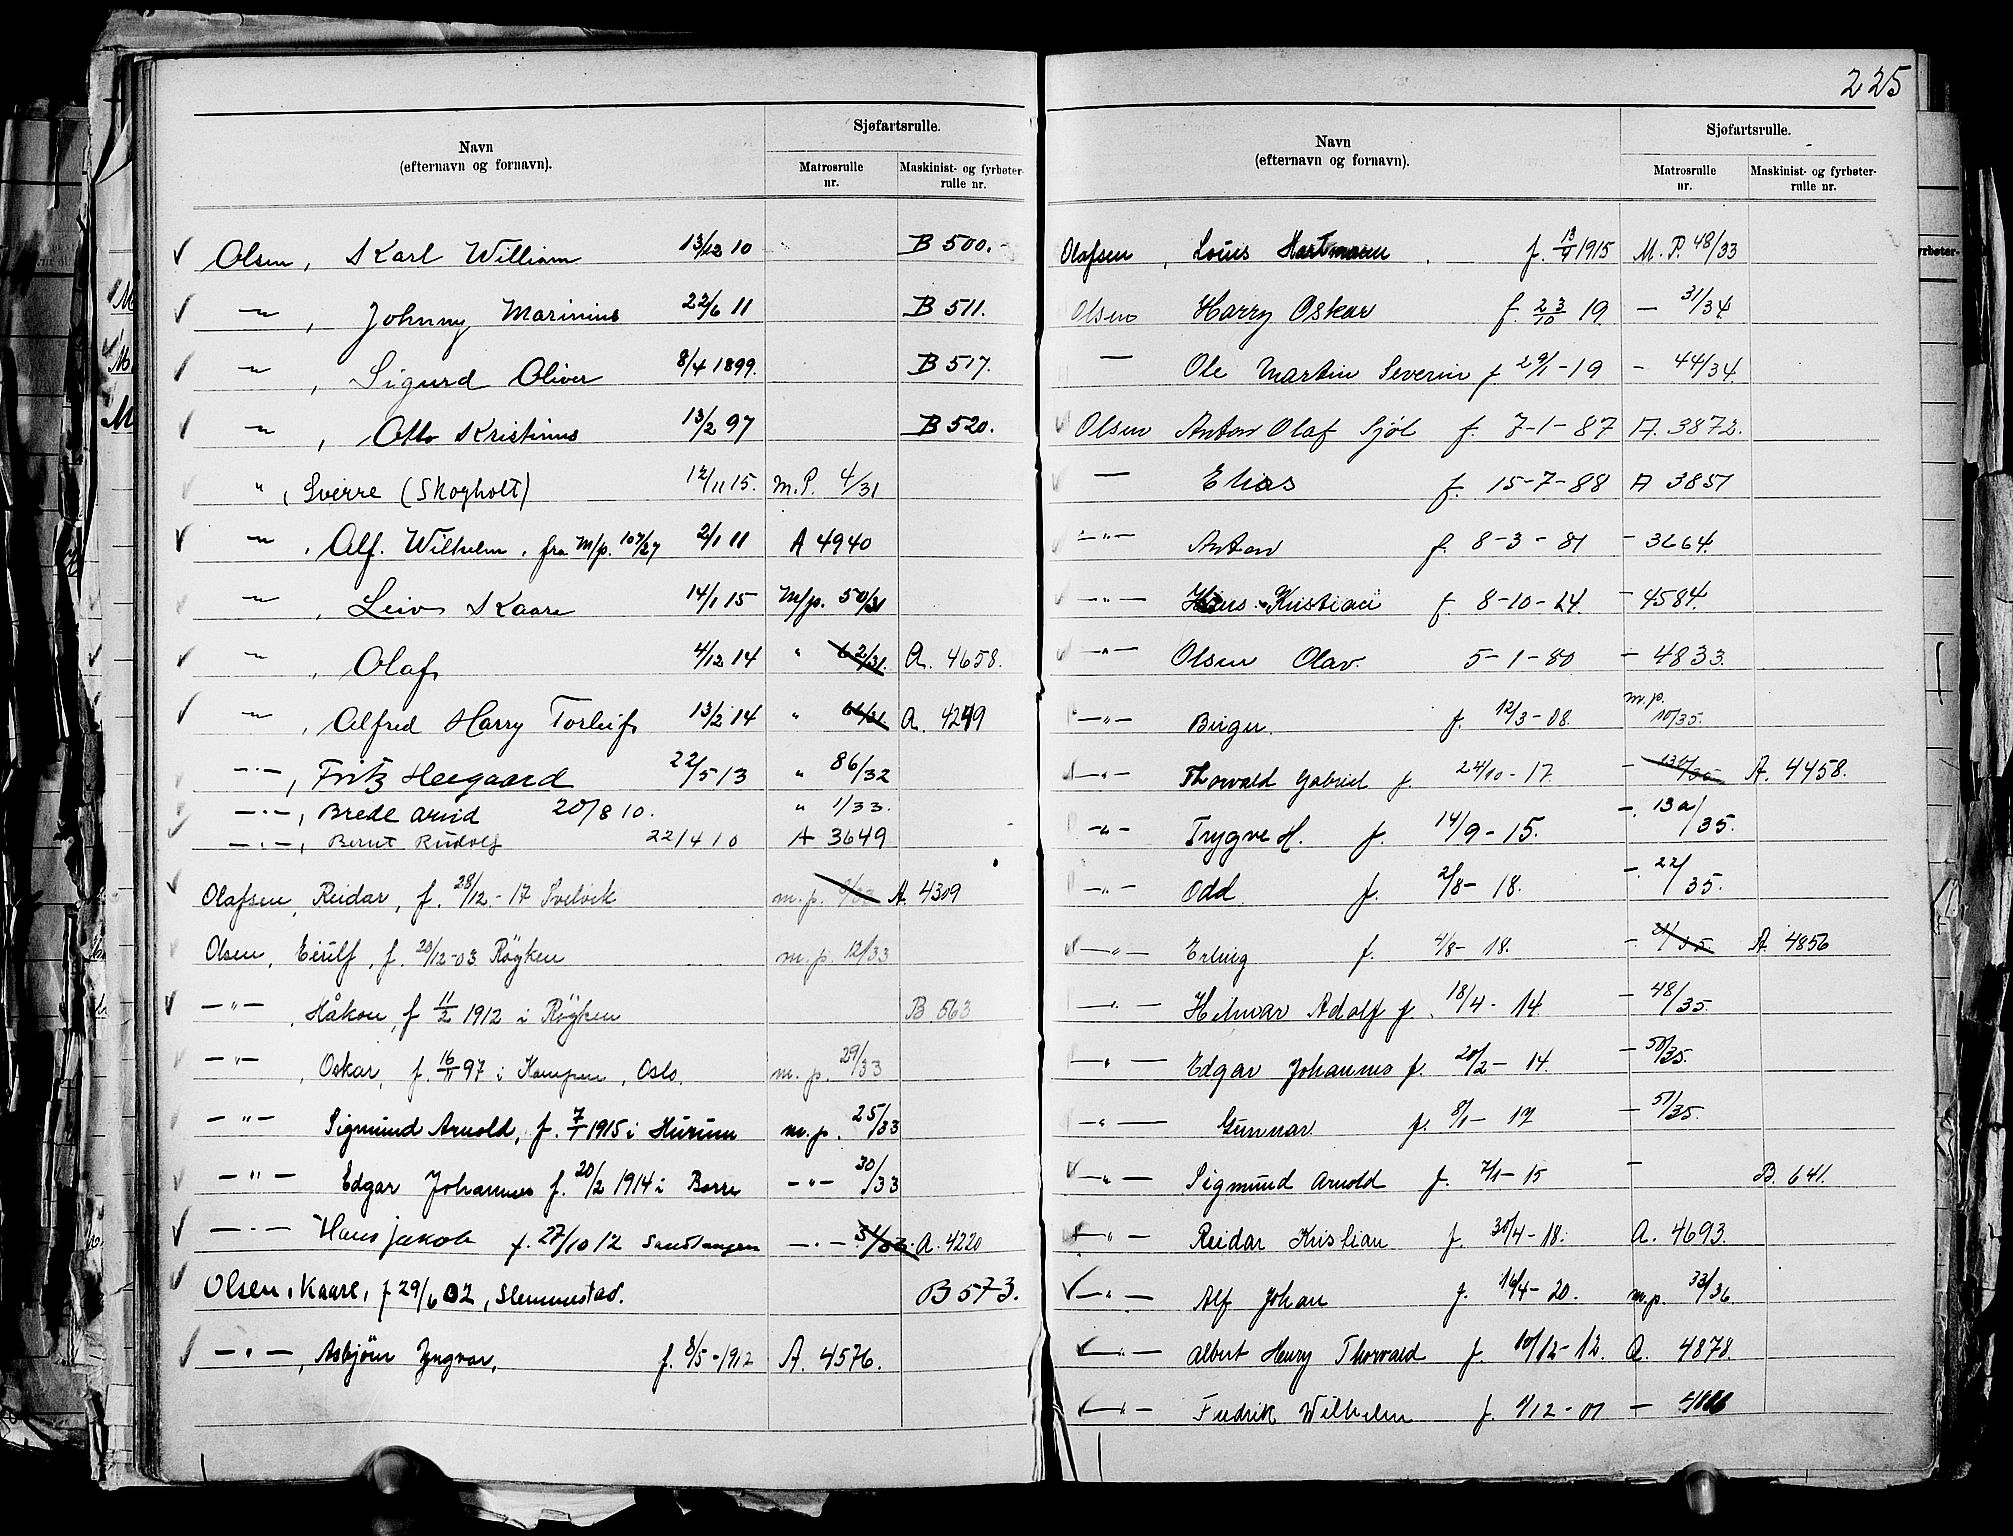 225
Navn
(efternavn og fornavn).
Sjøfartsrulle.
Matrosrulle
nr.
Maskinist- og fyrbøter-
rulle nr.
✓ Olsen, Karl William 13/12 10 B 500.-
✓ -"- , Johnny Marinius 22/6 11 B 511.
✓ -"- , Sigurd Oliver 8/4 1899. B 517.
✓ -"- , Otto Kristinus 13/2 97 B 520.
✓ " , Sverre (Skogholt) 12/11 15. m.P. 4/31
✓ -"- , Alf. Wilhelm, fra M/p. 107/27 2/1 11 A 4940
✓ -"- , Leiv Kaare 14/1 15 M/p. 50/31
" , Olaf 4/12 14 " 62/31. A. 4658.
✓ -"- , Alfred Harry Torleif 13/2 14 " 66/31 A. 4249
-"-, Fritz Heegaard 22/5 13 " 86/32
-"-, Brede Arvid 20/8 10. " 1/33.
-"-, Bernt Rudolf 22/4 10 A 3649
✓ Olafsen, Reidar, f. 28/12-17 Svelvik m.p. A. 4309
Olsen, Eirulf, f. 20/12-03 Røyken m.p. 12/33
✓ -"- , Håkon, f 11/2 1912 i Røyken B 563
-"- , Oskar, f. 16/11 97 i Kampen, Oslo. m.p. 29/33
-"- Sigmund Arnold, f. 7/1 1915 i Hurum m.p. 25/33
-"- Edgar Johannes f. 20/2 1914 i Borre -"- 30/33
✓ -"- Hans Jakob f. 27/10 12 -"- 51/33. A. 4220
✓ Olsen, Kaare, f 29/6 02, Slemmestad. B 573.
✓ -"-, Asbjörn Yngvar, f. 8/5-1912 A. 4576.
Navn
(efternavn og fornavn).
Sjøfartsrulle.
Matrosrulle
nr.
Maskinist- og fyrbøter-
rulle nr.
Olafsen, Louis Hartmann f. 13/9 1915 M.P. 48/33
Olsen Harry Oskar f. 23/10 19. - 31/34.
- Ole Martin Severin f 29/1-19 - 44/34.
Olsen Anton Olaf Sjöl f. 7-1-87 A. 3872.
- Elias f. 15-7-88 A 3851
-"- Anton f. 8-3-81 - 3664.
-"- Hans Kristian f. 8-10-14. - 4584.
-"- Olsen Olav. 5-1-80 - 4833.
-"- Birger. f. 12/3-08. m.p. 10/35.
-"- Thorvald Gabriel f. 24/10-17. - A. 4458.
-"- Trygve H. f. 14/9-15. - 13a/35.
-"- Odd f. 2/8-18. - 22/35.
-"- Erling f. 4/8-18. - 21/35. A. 4856
-"- Helmar Adolf f. 18/4-14. - 48/35.
-"- Edgar Johannes f. 20/2-14. - 50/35.
-"- Gunnar f. 8/1-17 - 51/35.
-"- Sigmund Arnold f. 7/1-15 - B. 641.
-"- Reidar Kristian f. 30/4-18. A. 4693.
✓ -"- Alf Johan f. 16/4-20. m.p. 33/36.
✓ -"- Albert Henry Thorvald f. 10/12-12. A. 4878.
✓ -"- Fredrik Wilhelm f. 1/12-01 -